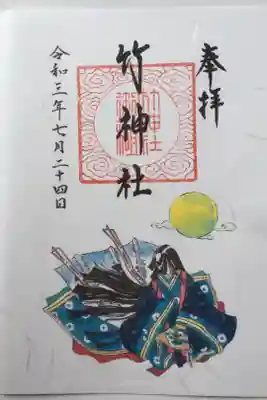 奉拝
竹神社
令和三年七月二十四日